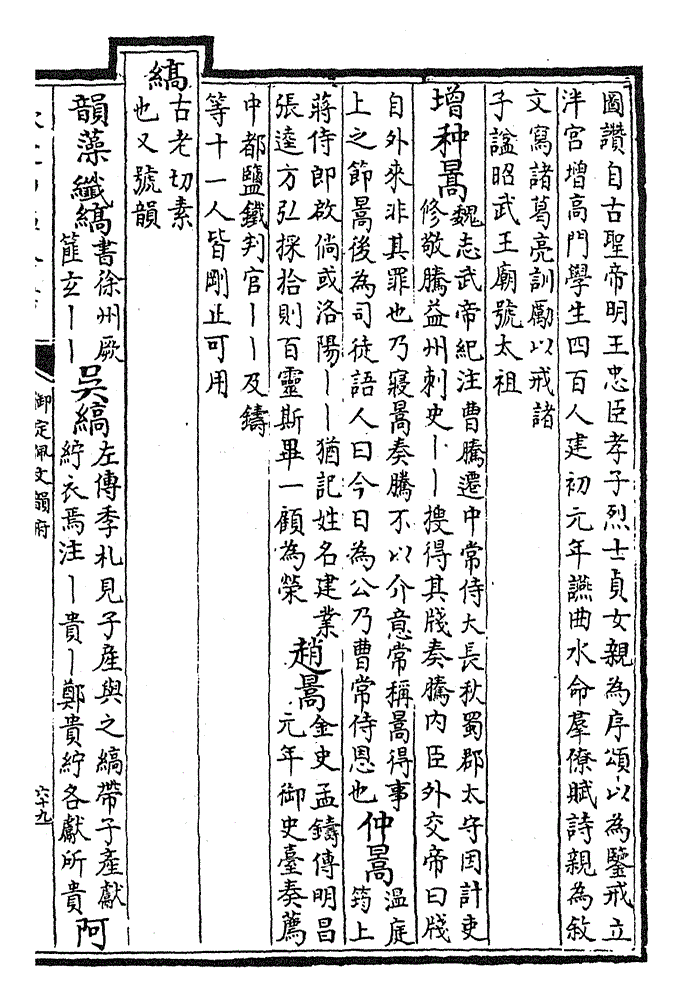 圖讚自古聖帝明王忠臣孝子烈士貞女親為序頌以為鑒戒立
泮宮增高門學生四百人建初元年讌曲水命羣僚賦詩親為敘
文寫諸葛亮訓勵以戒諸
子諡昭武王廟號太祖
增种暠
魏志武帝紀注曹騰遷中常侍大長秋蜀郡太守因計吏
修敬騰益州刺史丨丨搜得其牋奏騰內臣外交帝曰牋
自外來非其罪也乃寢暠奏騰不以介意常稱暠得事
上之節暠後為司徒語人曰今日為公乃曹常侍恩也
仲暠
温庭
筠上
蔣侍郎啟倘或洛陽丨丨猶記姓名建業
張逵方弘採拾則百靈斯畢一顧為榮
趙暠
金史孟鑄傳明昌
元年御史臺奏薦
中都鹽鐵判官丨丨及鑄
等十一人皆剛正可用
縞
古老切素
也又號韻
韻藻
纖縞
書徐州厥
篚玄丨丨
吳縞
左傳季札見子產與之縞帶子產獻
紵衣焉注丨貴丨鄭貴紵各獻所貴
阿
御定佩文韻府
六十九